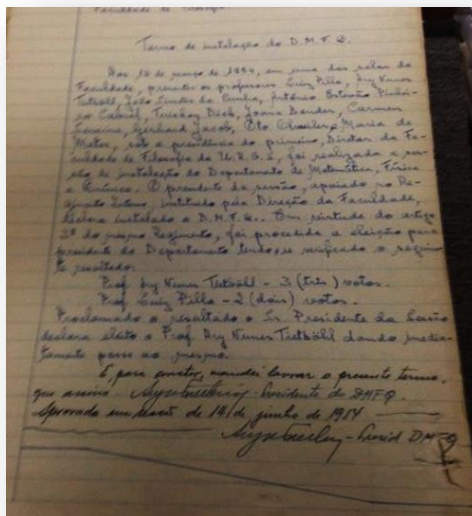 Faculdade de Filosofia.
Termo de instalação do D.M.F.Q.
Aos 12 de março de 1954, em uma das salas da
Faculdade, presentes os professores Luiz Pilla, Ary Nunes
Tietböhl, João Simões da Cunha, Antônio Estevão Pinhei-
ro Cabral, Jovina Bender, Carmen
Gerhard Jacob, Oto Maria de
Matos, sob a presidência do primeiro, Diretor da Fa-
culdade de Filosofia da U.R.G.S., foi realizada a ses-
são de instalação do Departamento de Matemática, Física
e Química. O presidente da sessão, apoiado no Re-
gimento Interno, instituído pela Direção da Faculdade,
declara instalado o D.M.F.Q.. Em virtude do artigo
3º do mesmo Regimento, foi procedida a eleição para
presidente do Departamento tendo-se verificado o seguin-
te resultado:
Prof. Ary Nunes Tietböhl - 3 (três) votos.
Prof. Luiz Pilla - 2 (dois) votos.
Proclamado o resultado o Sr. Presidente da Sessão
declara eleito o Prof. Ary Nunes Tietböhl dando imedia-
tamente posse ao mesmo.
E, para constar, mandei lavrar o presente termo,
que assino. Presidente do DMFQ.
Aprovada em sessão de 14 de junho de 1954
DMFQ